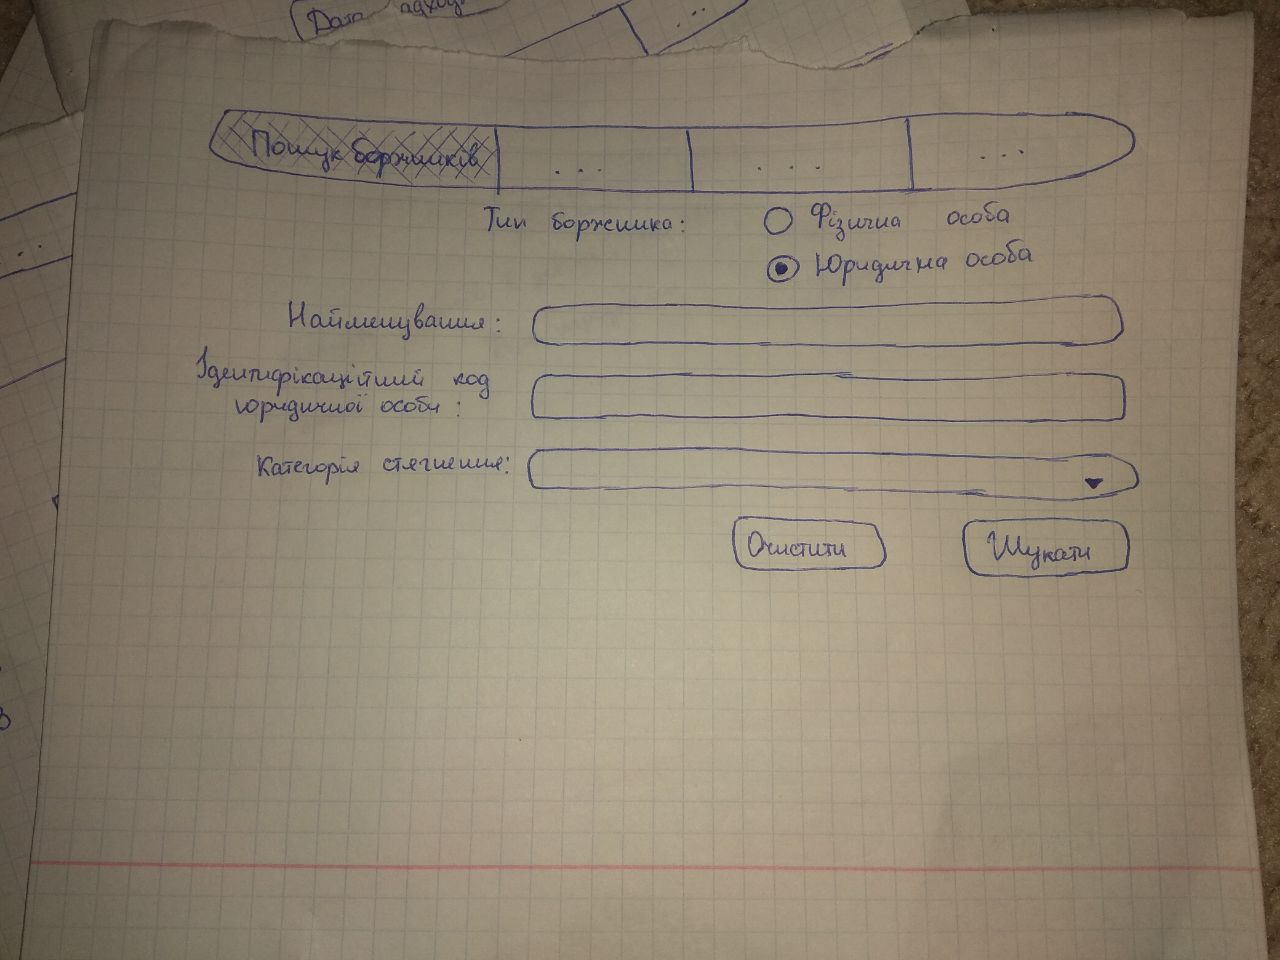 Дата
Пошук боржників
...
...
...
Тип боржника:
Фізична особа
Юридична особа
Найменування:
Ідентифікаційний код
юридичної особи:
Категорія стягнення:
Очистити
Шукати